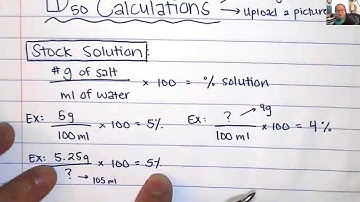 LD50 Calculations → Upload a picture
Stock Solution:
# g of salt / ml of water × 100 = % solution
Ex: 5g / 100 ml × 100 = 5% Ex: ? → 4g / 100 ml × 100 = 4%
Ex: 5.25g / ? → 105 ml × 100 = 5%